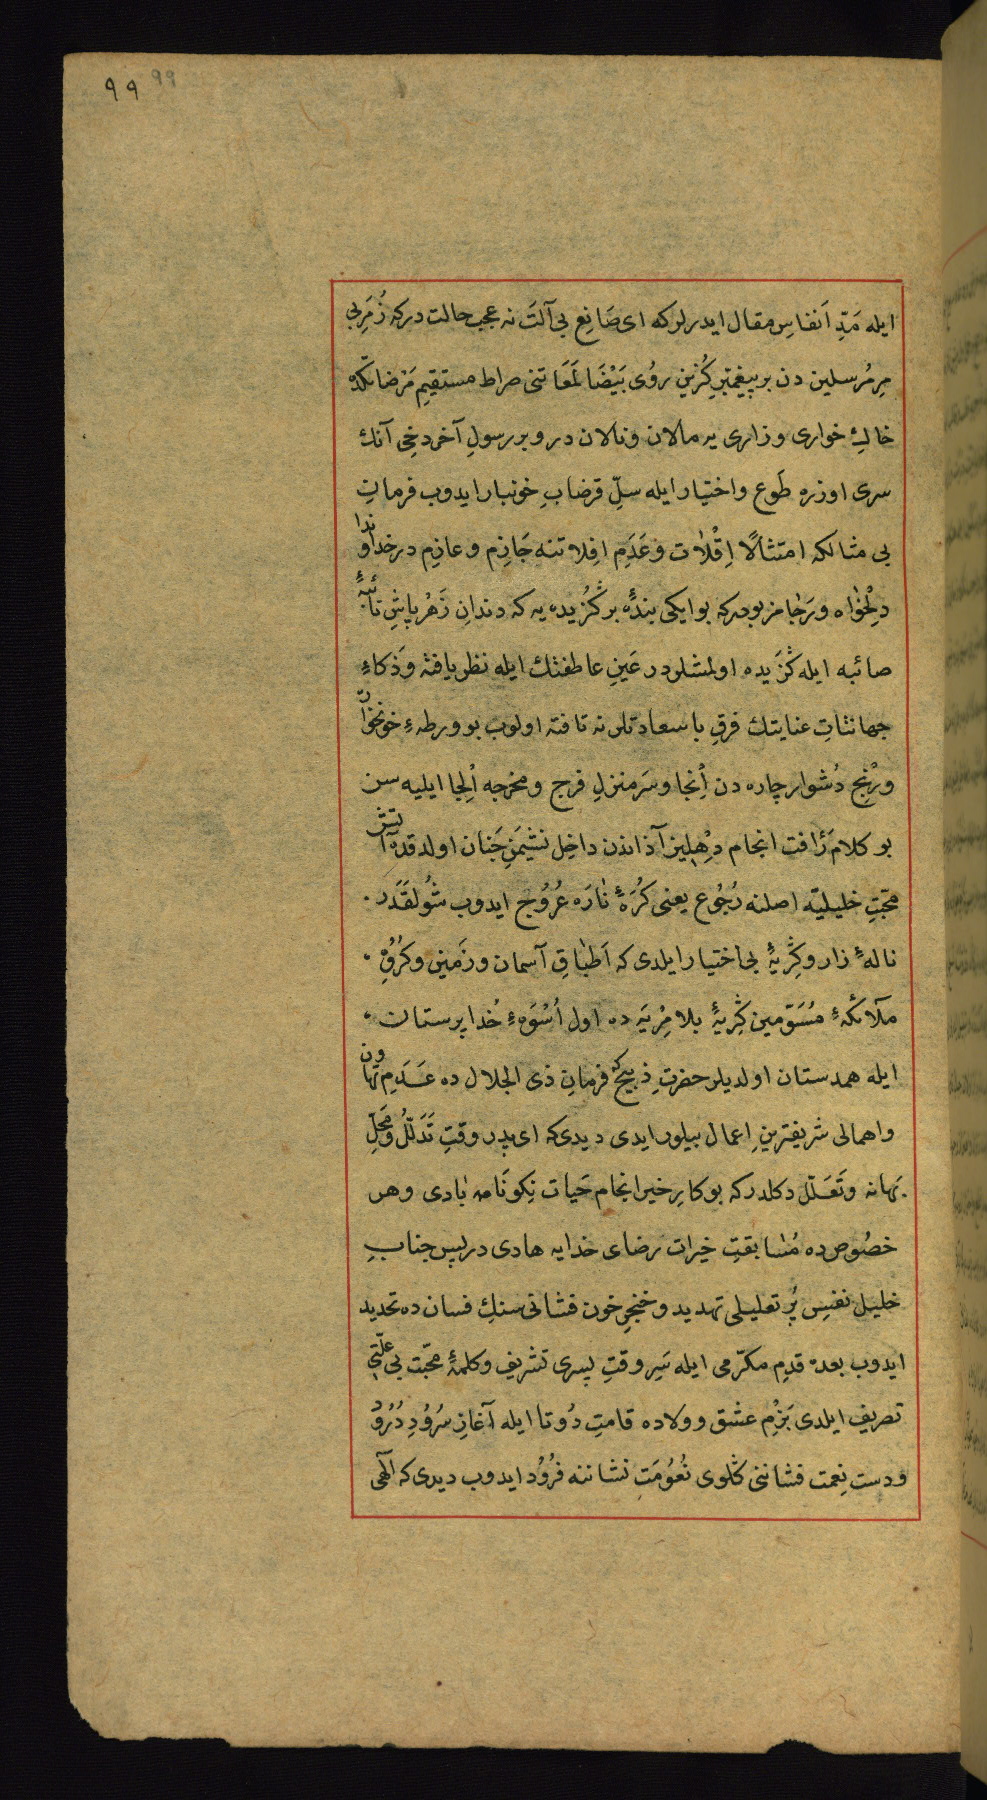 ٩٩ 99
ايله مَدِّ اَنفاسِ مقال ايدرلركه اى صَانِعِ بى آلَت نه عجب حالت دركه زُمَرِبى
مِرمُرسلين دن برپيغمبرِ كُزين روُى بَيْضَا لمَعَاتنى صراط مستقيمِ مَرضاتكده
خاكِ خوارى وزارى يه مالان ونالان در وبر رسولِ آخر دخِى آنك
سرى اوزره طَوع واختيار ايله سلِّ قرضابِ خونبار ايدوب فرمانِ
بى مثالكه امتثالًا اِفْلات وعَدَمِ افِلاتنه جَازِم وعازِم در خداوندا
دِلْخوٰاه ورَجٰامز بودركه بوايكى بندۀ بركُزيده يه كه دندانِ زَهْرپاشِ نائبۀ
صائبه ايله كَزَيده اولمشلردر عَينِ عاطفتك ايله نظر يافته وَذكاءِ
جهانتابِ عنايتك فرقِ باسعادتلرنه تافته اولوب بو ورطهءِ خونخوٰار
ورَنْجِ دُشوار چاره دن اُنجا وسَرمنزلِ فرج ومخرجه اُلجا ايليه سن
بوكلام رَأفت انجام دِهليز آذاندن داخِل نشيمَنِ جَنان اولدقده آتش
محبّتِ خليليّه اصلنه رُجُوع يعنى كُرَۀ نٰارَه عُرُوُج ايدوب شُولقَدَر .
نالۀ زار وكِريۀ بى اختيار ايلدى كه اَطْبٰاقِ آسمان وزَمين وكُرُوْهِ .
ملآئكۀ مُسَوّمين كِريۀ بلا مِرْيَه ده اول اُسْوَهءِ خُدا پرستان .
ايله همدستان اولديلر حضرتِ ذبيح كه فرمانِ ذى الجلال ده عَدَمِ تهاون
واهمالى شريفترينِ اعمال بيلور ايدى ديدى كه اى پدر وقتِ تَدَلّلُ ومَحَلّ
بَهانه وتَعَلّل دكلدر كه بوكارِ خير انجام حَيات نِكونَامه بٰادى وهر
خصُوص ده مُسٰابقتِ خَيرات رضاى خدايه هادى در پس جنابِ
خليل نفسِ پُر تعليلى تهديد وخنجرِ خون فشانى سنكِ فسان ده تحديد
ايدوب بعده قدِم مكرّمى ايله سَرِوقتِ پسرى تشريف وكلمۀ محبّت بى علّتى
تصريف ايلدى بَزْمِ عشق وولاده قامتِ دُوتا ايله آغازِ سرُوُدِ دُرُوْد
ودست نِعمت فشاننى كلوى نُعُومَتِ نشاننه فرُوُد ايدوب ديدى كه الٓهى